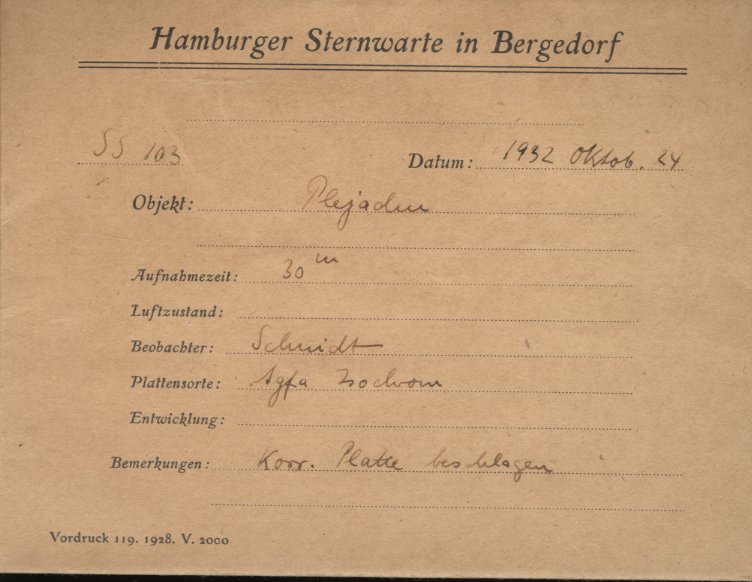 Hamburger Sternwarte in Bergedorf
SS 103 Datum: 1932 Oktob. 24
Objekt: Plejaden
Aufnahmezeit: 30 m
Luftzustand:
Beobachter: Schmidt
Plattensorte: Agfa Isochrom
Entwicklung:
Bemerkungen: Korr. Platte beschlagen
Vordruck 119. 1928. V. 2000